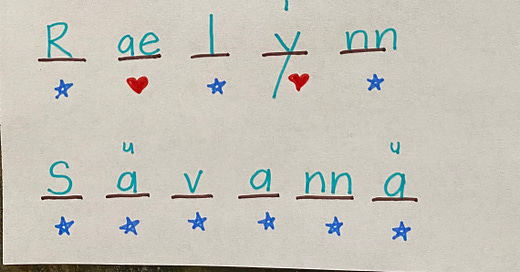 R ae l y nn
u u
S a v a nn a